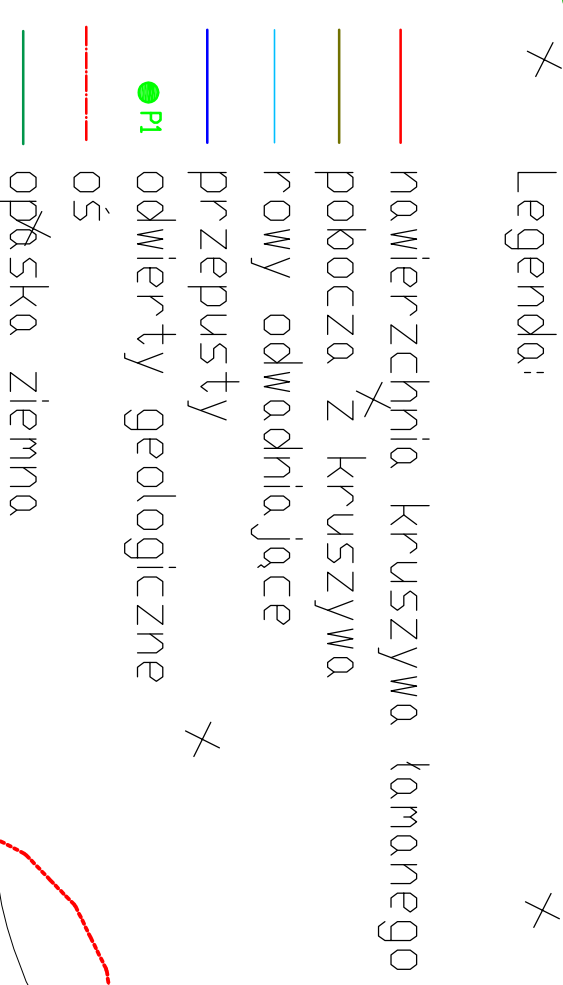 Legenda:
nawierzchnia kruszywa łamanego
pobocza z kruszywa
rowy odwadniające
przepusty
P1 odwierty geologiczne
oś
opaska ziemna